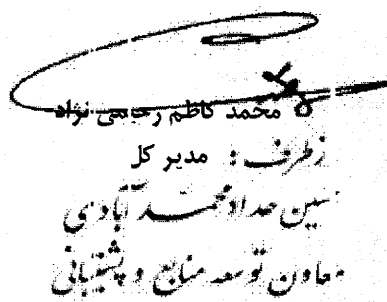 محمد کاظم رحیمی نژاد
ازطرف : مدیر کل
حسین حدادمحمدآبادی
معاون توسعه منابع و پشتیبانی